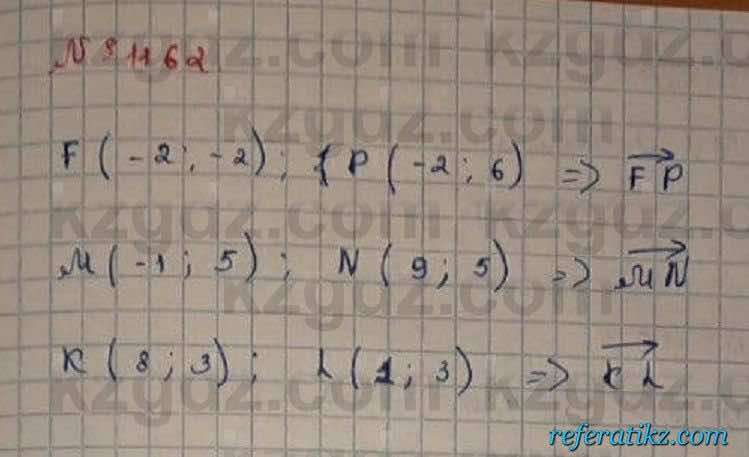 № 1162
F (-2; -2); P (-2; 6) => FP
M (-1; 5); N (9; 5) => MN
K (8; 3); L (1; 3) => KL
kzgdz.com
referatikz.com